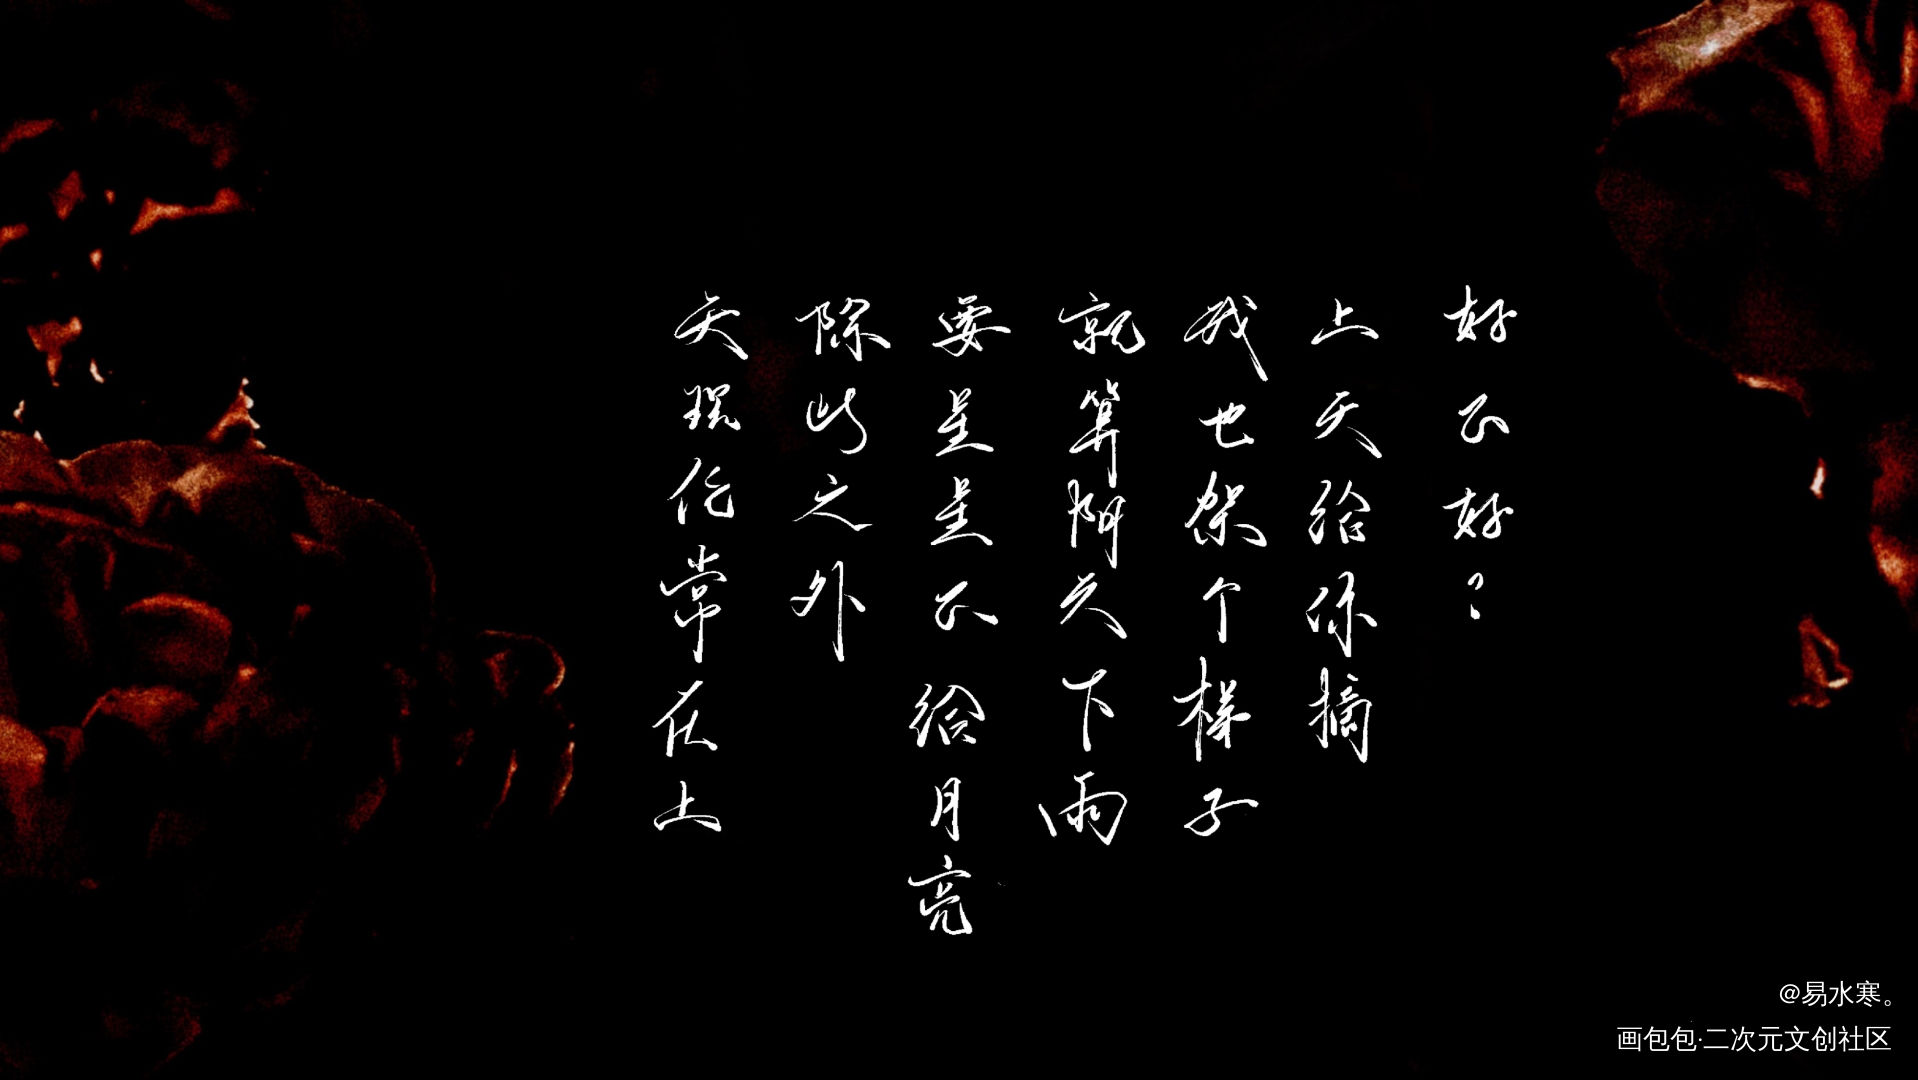 天理伦常在上
除此之外
要星星不给月亮
就算阴天下雨
我也架个梯子
上天给你摘
好不好？
@易水寒。
画包包·二次元文创社区